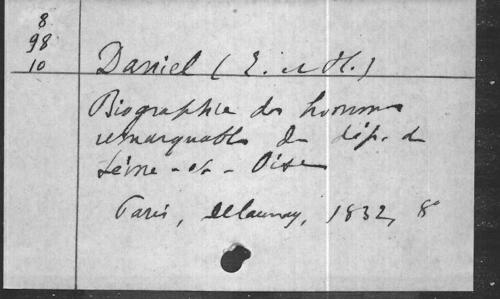 8
98
10
Daniel (E. et H.)
Biographie des hommes
remarquables du dép. de
Seine-et-Oise
Paris, Delaunay, 1832, 8°